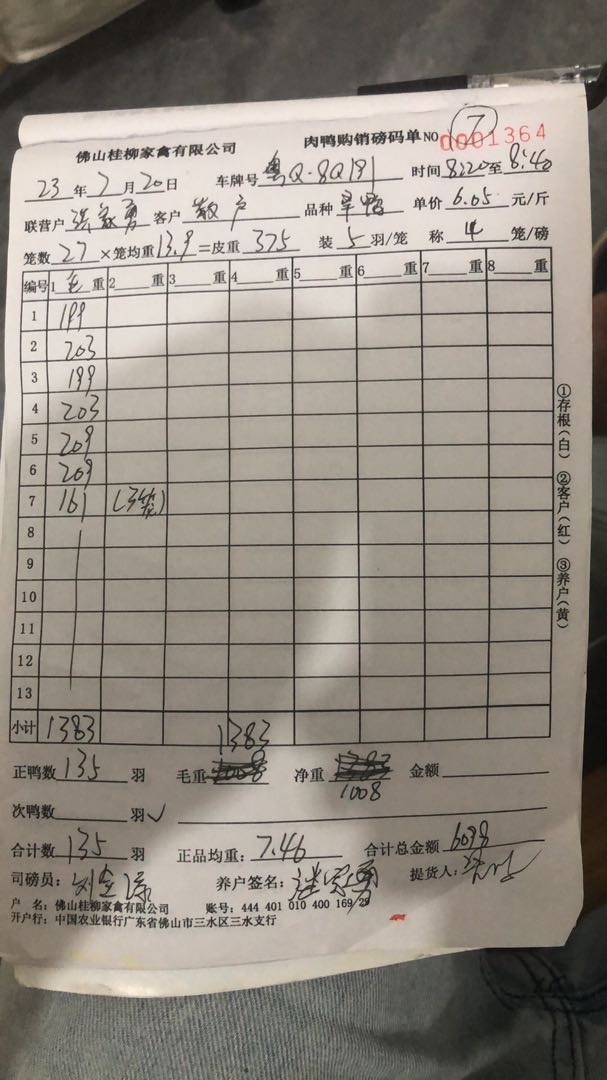 ⑦
佛山桂柳家禽有限公司 肉鸭购销磅码单NO 0001364
23 年 7 月 20 日 车牌号 粤Q·8Q191 时间 8:20 至 8:40
联营户 客户 散户 品种 旱鸭 单价 6.05 元/斤
笼数 27 ×笼均重 13.9 =皮重 375 装 5 羽/笼 称 4 笼/磅
编号 1 毛 重 2 重 3 重 4 重 5 重 6 重 7 重 8 重
1 199
2 203
3 199
4 203
5 209
6 209
7 161 (3笼)
8
9
10
11
12
13
小计 1383
①存根(白) ②客户(红) ③养户(黄)
1383
正鸭数 135 羽 毛重 净重 金额
1008
次鸭数 羽 ✓
合计数 135 羽 正品均重: 7.46 合计总金额 6098
司磅员: 养户签名: 提货人:
户 名: 佛山桂柳家禽有限公司 账号: 444 401 010 400 169 29
开户行: 中国农业银行广东省佛山市三水区三水支行